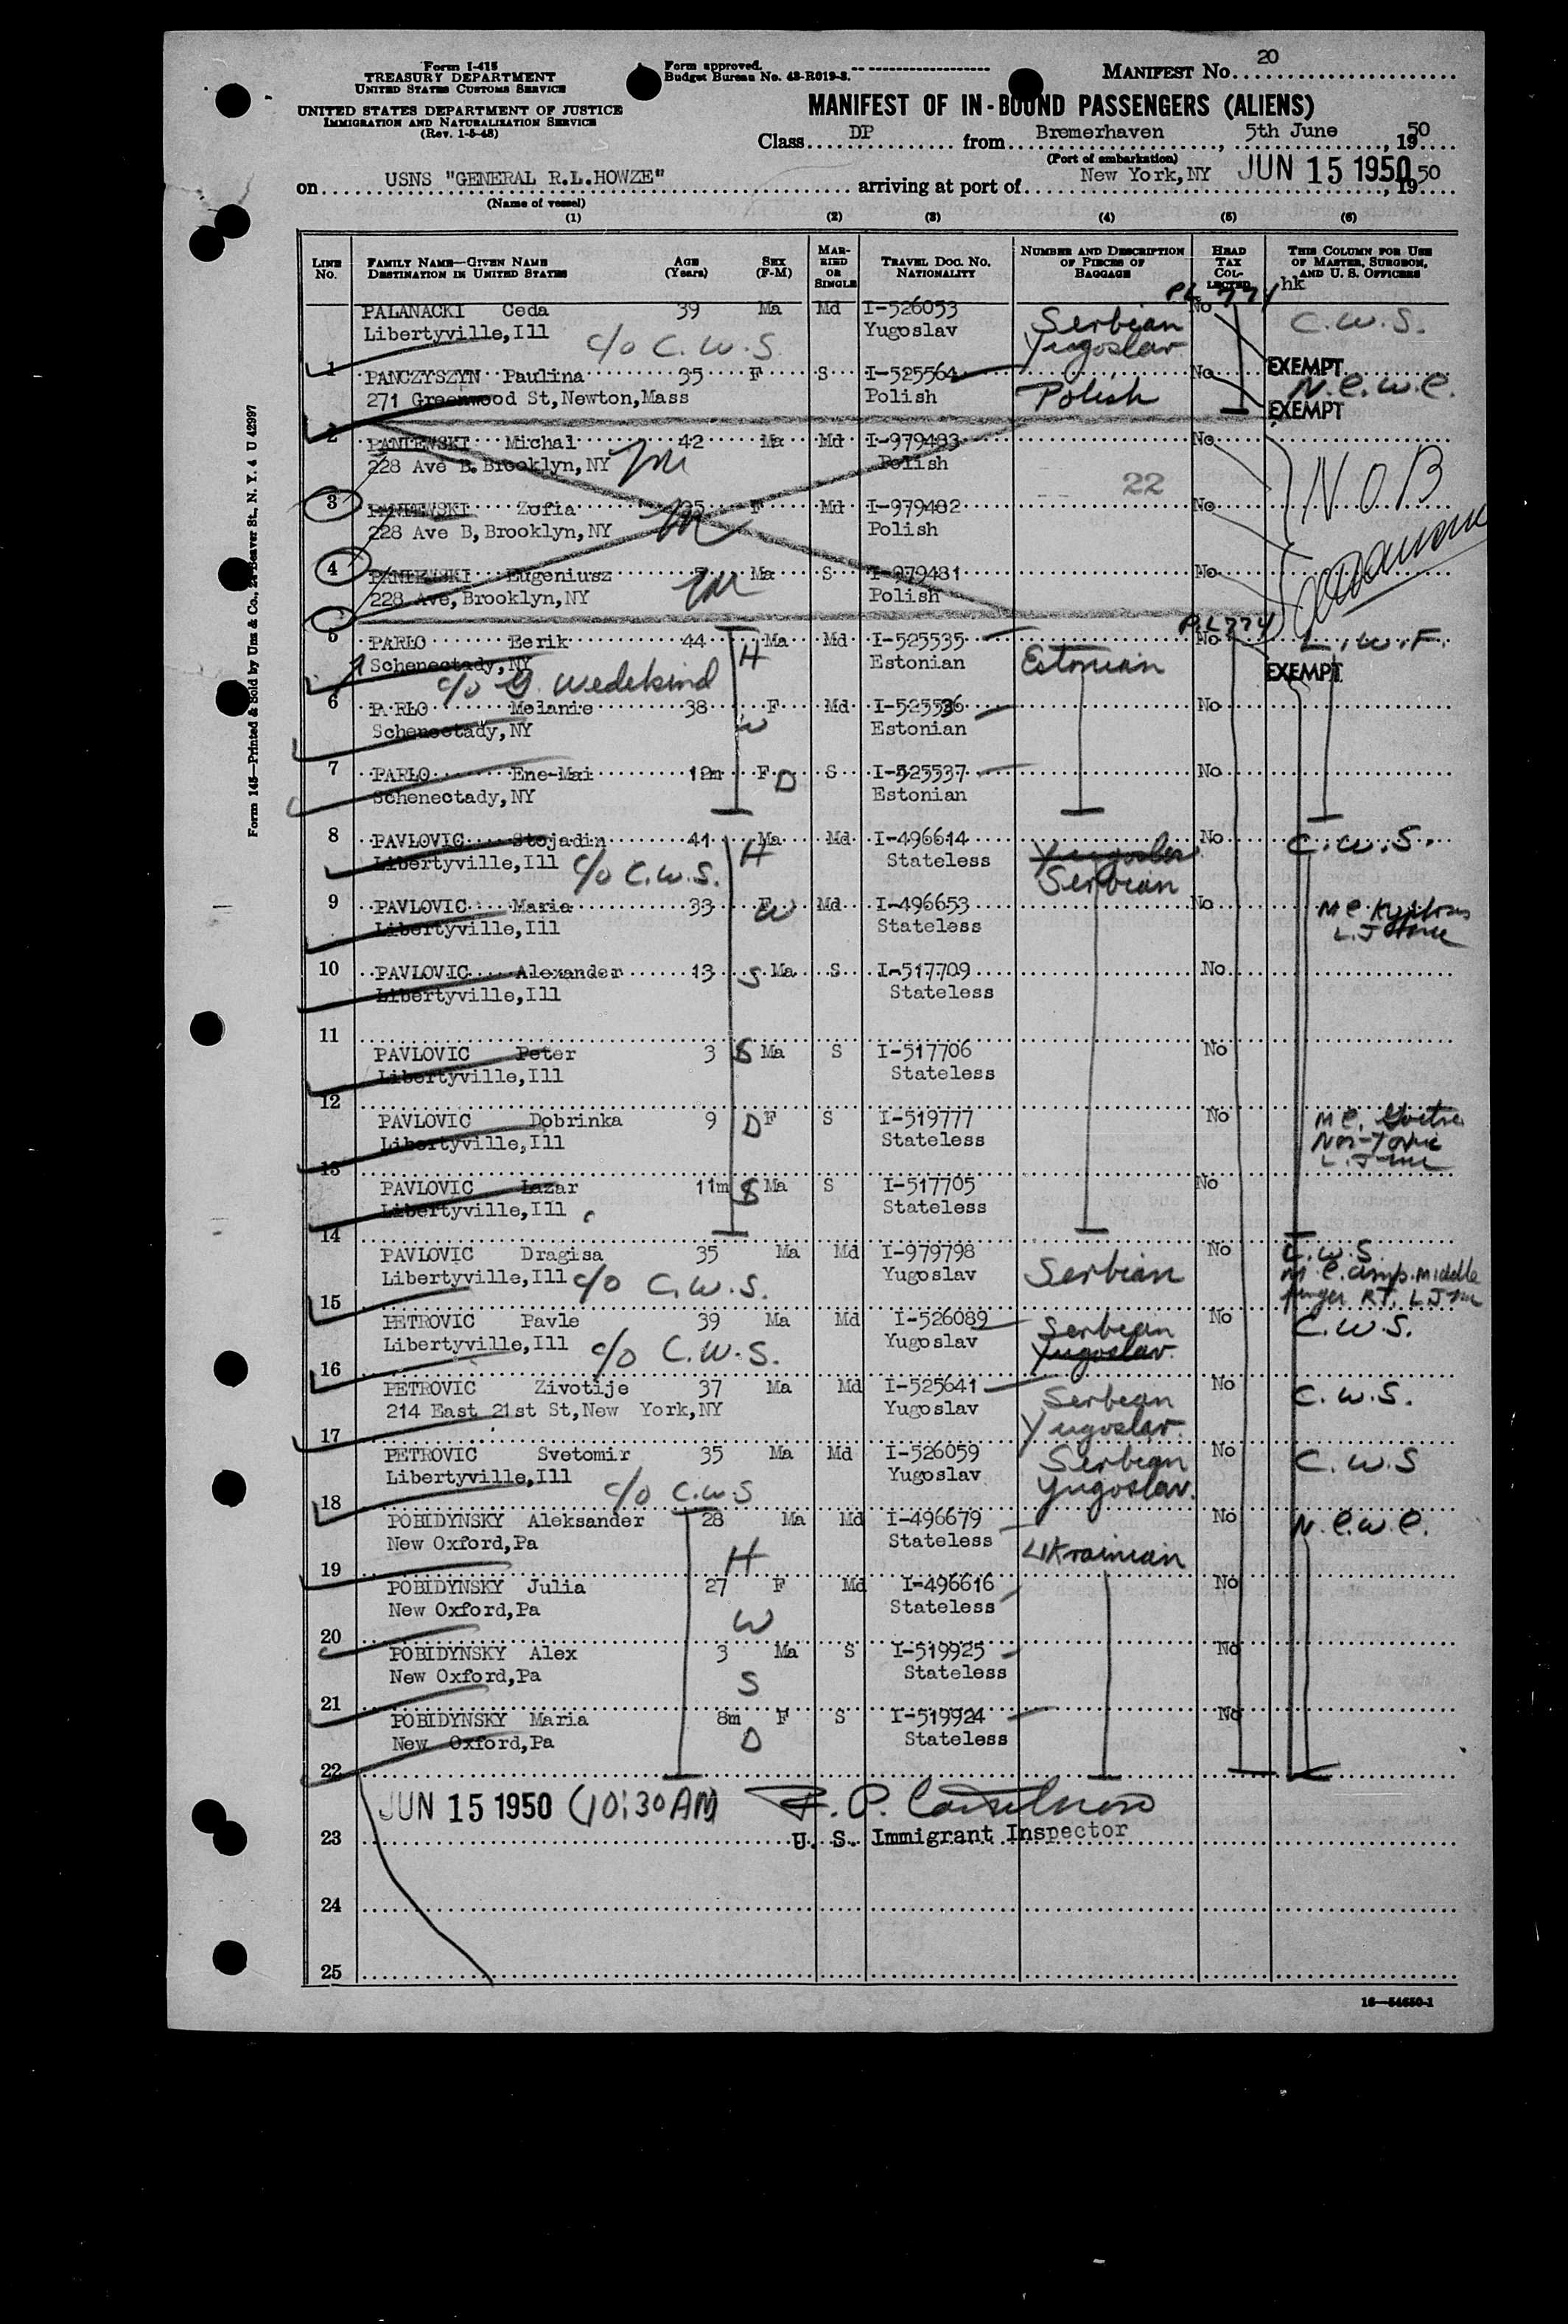 Form I-415
TREASURY DEPARTMENT
UNITED STATES CUSTOMS SERVICE
UNITED STATES DEPARTMENT OF JUSTICE
IMMIGRATION AND NATURALIZATION SERVICE
(Rev. 1-5-48)
Form approved.
Budget Bureau No. 43-R019-3.
MANIFEST No. 20
MANIFEST OF IN-BOUND PASSENGERS (ALIENS)
Class DP from Bremerhaven, 5th June, 1950
(Port of embarkation)
on USNS "GENERAL R.L.HOWZE" arriving at port of New York, NY JUN 15 1950, 1950
(Name of vessel)
(1) (2) (3) (4) (5) (6)
LINE No. FAMILY NAME—GIVEN NAME DESTINATION IN UNITED STATES AGE (Years) SEX (F-M) MARRIED OR SINGLE TRAVEL DOC. NO. NATIONALITY NUMBER AND DESCRIPTION OF PIECES OF BAGGAGE HEAD TAX COLLECTED THIS COLUMN FOR USE OF MASTER, SURGEON, AND U. S. OFFICERS
hk
PL 774
PALANACKI Ceda 39 Ma Md I-526053 Serbian No C.W.S.
Libertyville, Ill c/o C.W.S. Yugoslav Yugoslav
1 EXEMPT
PANCZYSZYN Paulina 35 F S I-525564 No N.C.W.C.
271 Greenwood St, Newton, Mass Polish Polish
2 EXEMPT
PANIEWSKI Michal 42 Ma Md I-979483 No
228 Ave B. Brooklyn, NY Polish
22 N.O.B
3 PANIEWSKI Zofia 35 F Md I-979482 No
228 Ave B, Brooklyn, NY Polish
4 PANIEWSKI Eugeniusz Ma S I-979481 No
228 Ave, Brooklyn, NY Polish
PL 774
5 PARLO Eerik 44 H Ma Md I-525535 No L.W.F.
Schenectady, NY Estonian Estonian EXEMPT
c/o G. Wedekind
6 PARLO Melanie 38 W F Md I-525536 No
Schenectady, NY Estonian
7 PARLO Ene-Mai 19m F D S I-525537 No
Schenectady, NY Estonian
8 PAVLOVIC Stojadin 41 H Ma Md I-496614 Yugoslav No C.W.S.
Libertyville, Ill c/o C.W.S. Stateless Serbian
9 PAVLOVIC Maria 33 F W Md I-496653 No
Libertyville, Ill Stateless
10 PAVLOVIC Alexander 13 S Ma S I-517709 No
Libertyville, Ill Stateless
11
PAVLOVIC Peter 3 S Ma S I-517706 No
Libertyville, Ill Stateless
12
PAVLOVIC Dobrinka 9 D F S I-519777 No
Libertyville, Ill Stateless
13
PAVLOVIC Lazar 11m S Ma S I-517705 No
Libertyville, Ill Stateless
14
PAVLOVIC Dragisa 35 Ma Md I-979798 No C.W.S.
Libertyville, Ill c/o C.W.S. Yugoslav Serbian M.C. amp. middle
15 finger RT.
PETROVIC Pavle 39 Ma Md I-526089 Serbian No C.W.S.
Libertyville, Ill c/o C.W.S. Yugoslav Yugoslav
16
PETROVIC Zivotije 37 Ma Md I-525641 Serbian No C.W.S.
214 East 21st St, New York, NY Yugoslav Yugoslav.
17
PETROVIC Svetomir 35 Ma Md I-526059 Serbian No C.W.S
Libertyville, Ill c/o C.W.S Yugoslav Yugoslav.
18
POBIDYNSKY Aleksander 28 Ma Md I-496679 No N.C.W.C.
New Oxford, Pa H Stateless Ukrainian
19
POBIDYNSKY Julia 27 F Md I-496616 No
New Oxford, Pa W Stateless
20
POBIDYNSKY Alex 3 Ma S I-519925 No
New Oxford, Pa S Stateless
21
POBIDYNSKY Maria 8m F S I-519924 No
New Oxford, Pa D Stateless
22
JUN 15 1950 (10:30 AM)
23 U. S. Immigrant Inspector
24
25
16—54650-1